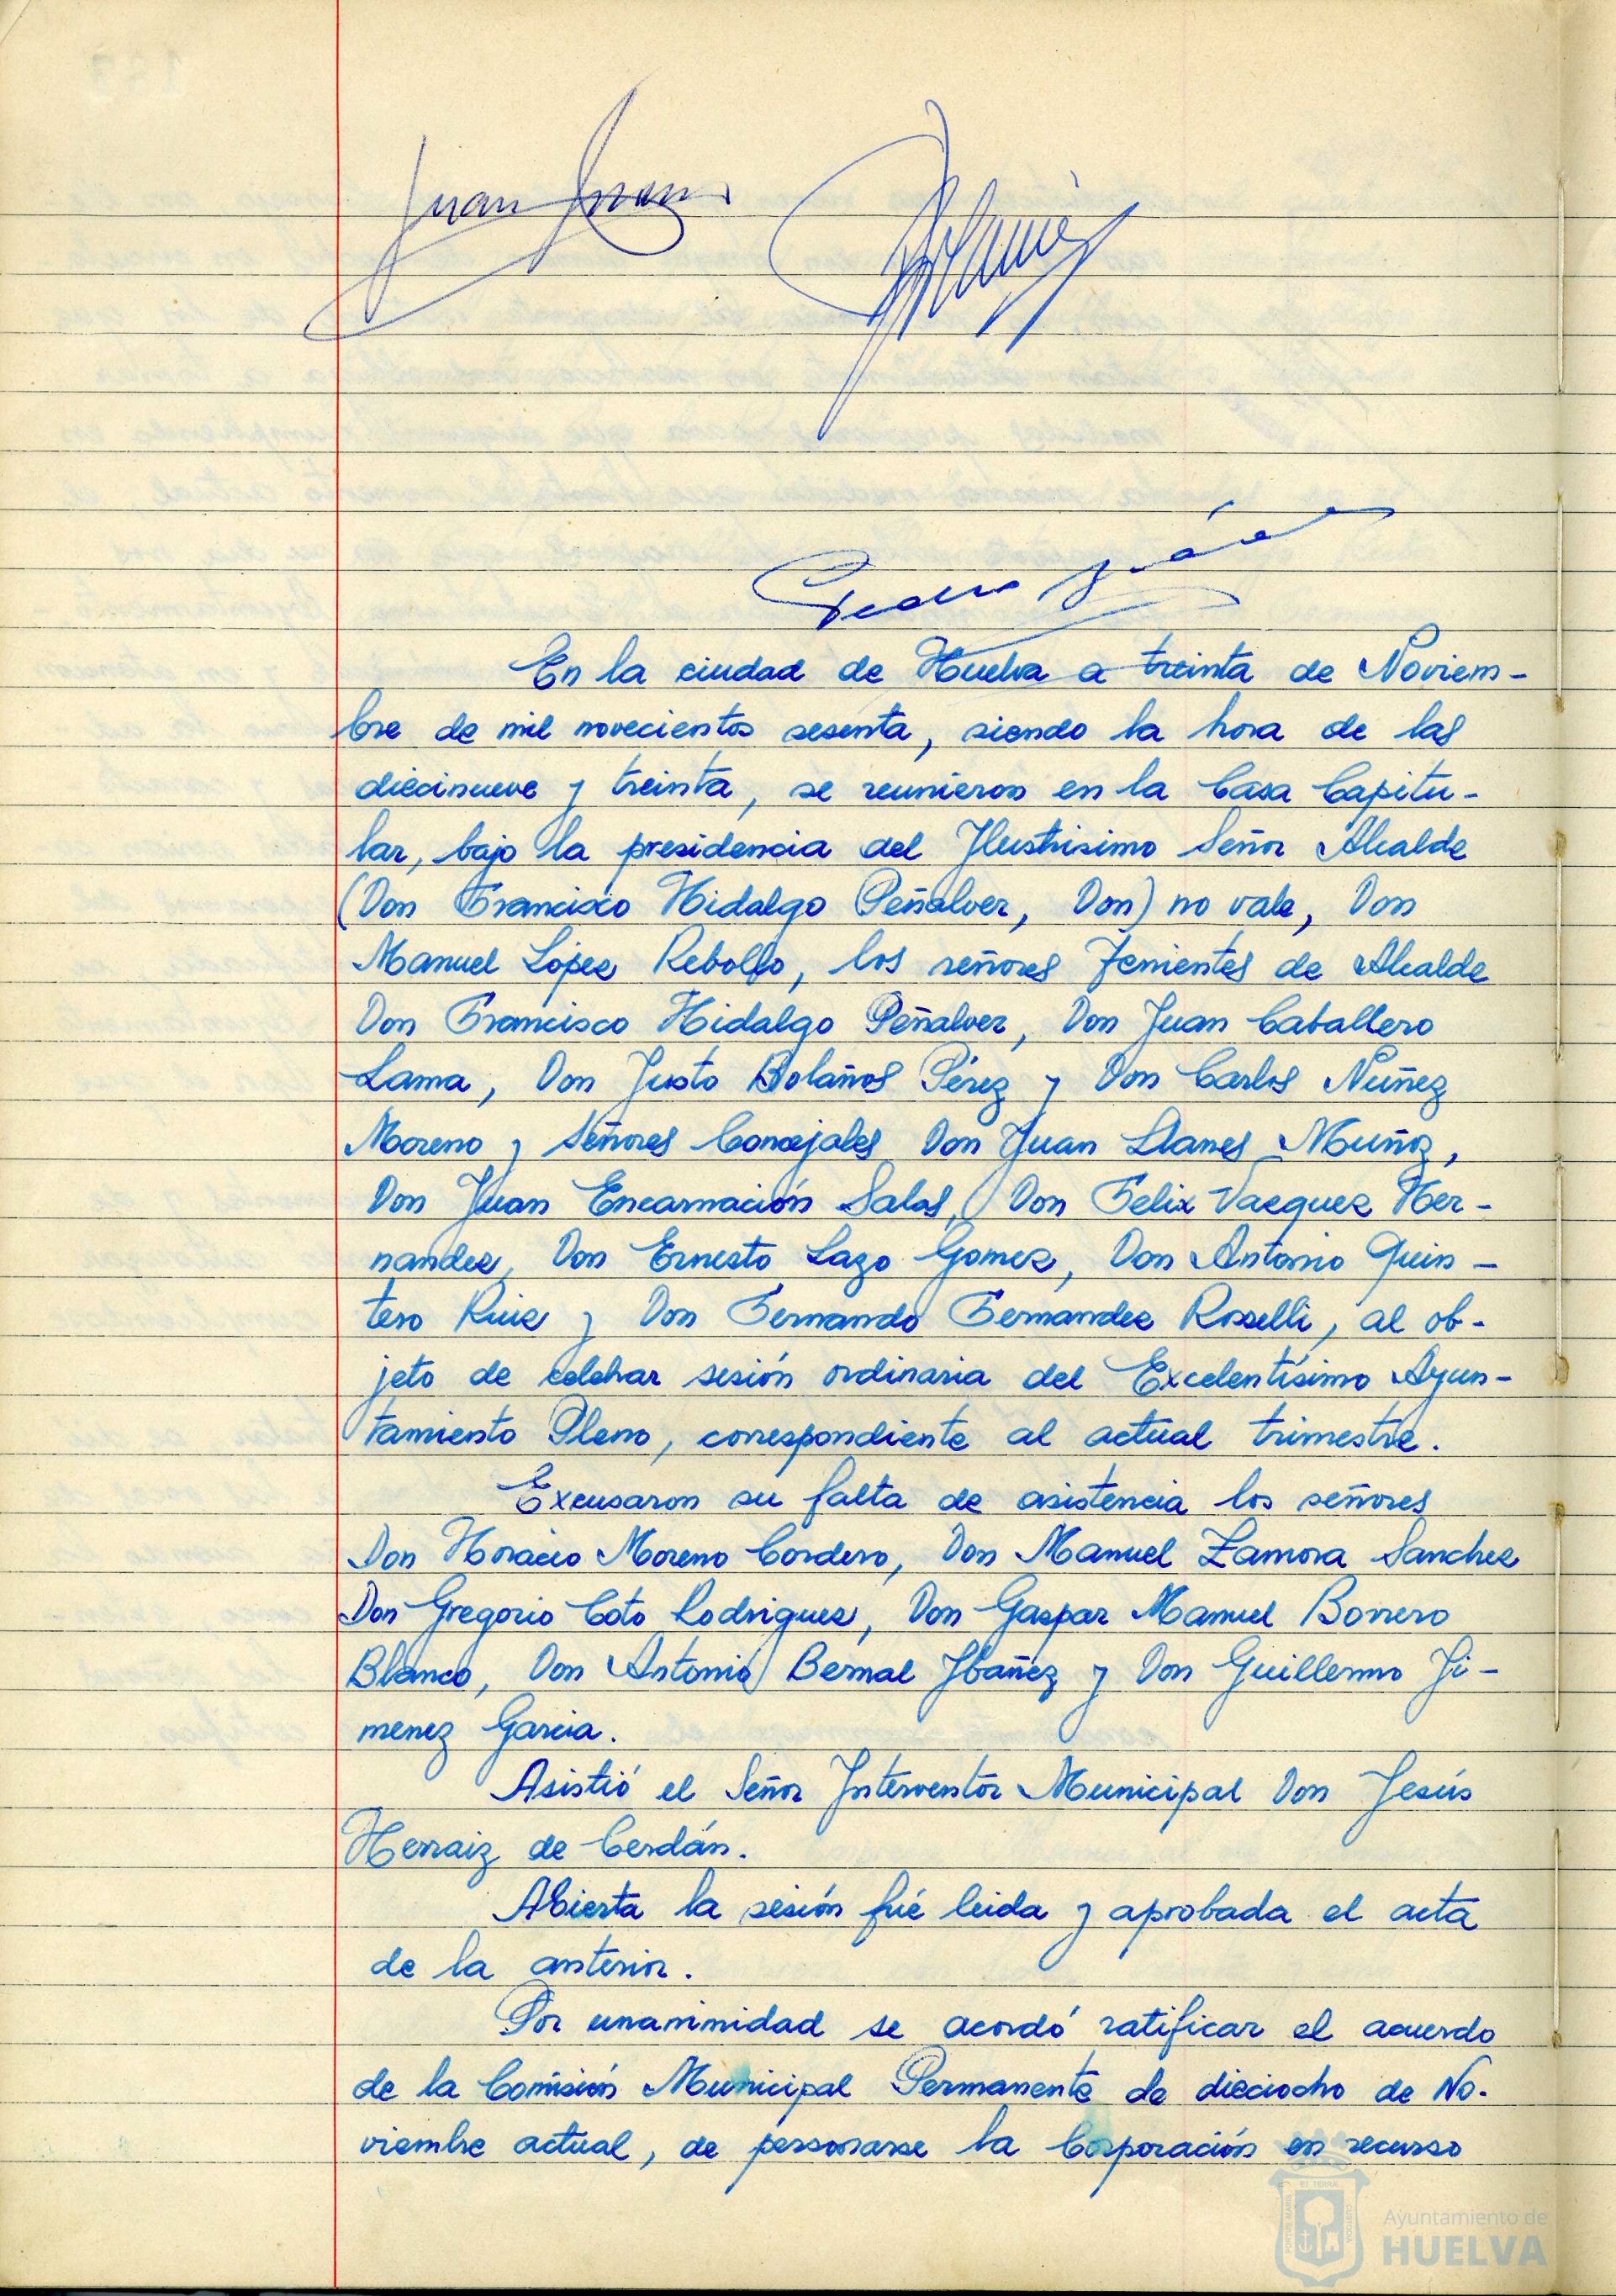 Juan
Pedro
En la ciudad de Huelva a treinta de Noviem-
bre de mil novecientos sesenta, siendo la hora de las
diecinueve y treinta, se reunieron en la Casa Capitu-
lar, bajo la presidencia del Ilustrisimo Señor Alcalde
(Don Francisco Hidalgo Peñalver, Don) no vale, Don
Manuel López Rebollo, los señores Tenientes de Alcalde
Don Francisco Hidalgo Peñalver, Don Juan Caballero
Lama, Don Justo Bolaños Pérez y Don Carlos Nuñez
Moreno y Señores Concejales Don Juan Llanes Muñoz,
Don Juan Encarnación Salas, Don Felix Vazquez Her-
nandez, Don Ernesto Lazo Gomez, Don Antonio Quin-
tero Ruiz y Don Fernando Fernandez Rosselli, al ob-
jeto de celebrar sesión ordinaria del Excelentísimo Ayun-
tamiento Pleno, correspondiente al actual trimestre.
Excusaron su falta de asistencia los señores
Don Horacio Moreno Cordero, Don Manuel Zamora Sanchez
Don Gregorio Coto Rodriguez, Don Gaspar Manuel Borrero
Blanco, Don Antonio Bernal Ybañez y Don Guillermo Ji-
menez Garcia.
Asistió el Señor Interventor Municipal Don Jesús
Herraiz de Cerdán.
Abierta la sesión fué leida y aprobada el acta
de la anterior.
Por unanimidad se acordó ratificar el acuerdo
de la Comisión Municipal Permanente de dieciocho de No-
viembre actual, de personarse la Corporación en recurso
Ayuntamiento de
HUELVA